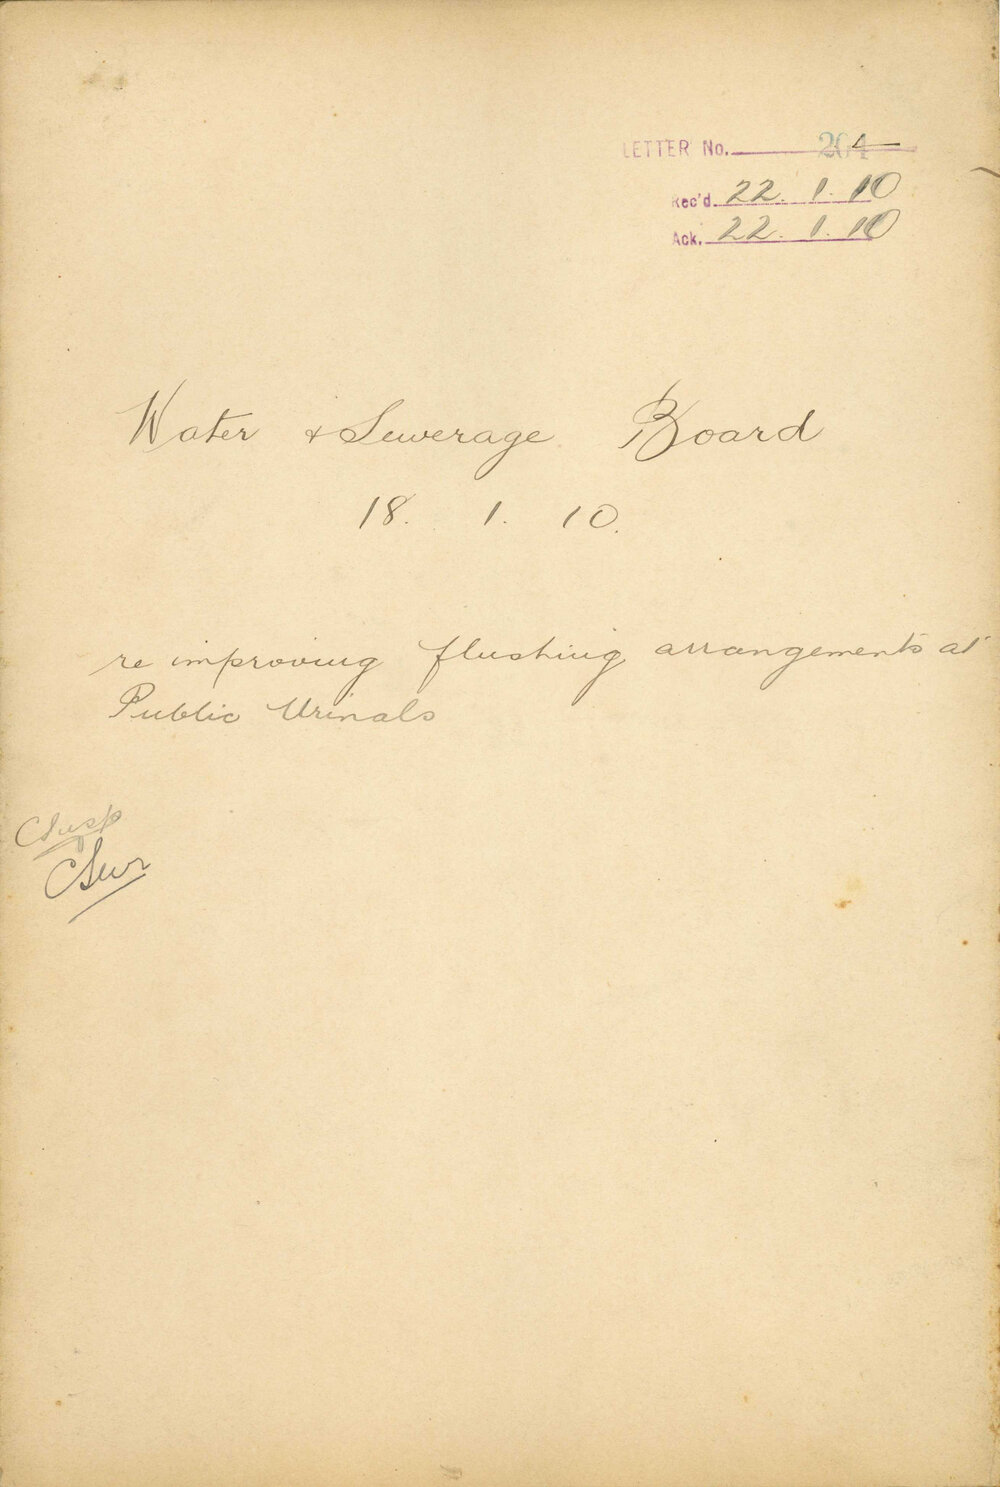 LETTER No. 204
Rec'd. 22. 1. 10
Ack. 22. 1. 10
Water & Sewerage Board
18. 1. 10.
re improving flushing arrangements at
Public Urinals